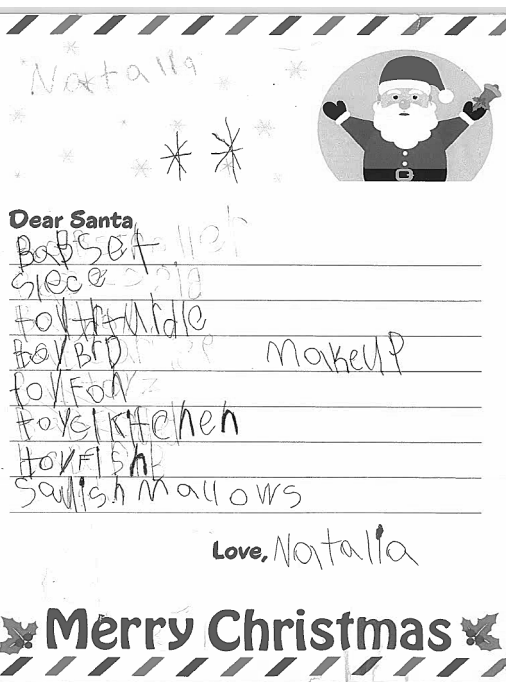 Natalia
Dear Santa
BabSet
Slece
toy turdle
toy BrD
makeup
toy Fon
toy cikitchen
toy Fish
Sqwish mallows
Love, Natalia
Merry Christmas